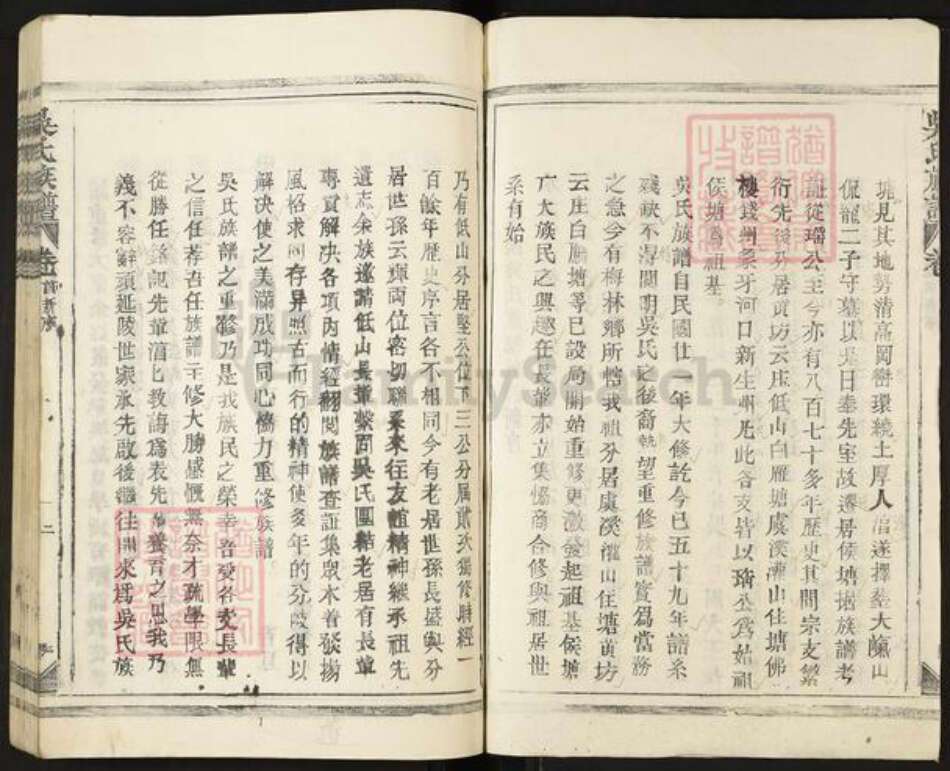 境見其地勢清高岡巒環繞土厚人富遂擇塟大山
侃龍二子守墓以是日奉先室故遷居候塘据族譜考
證從瑠公至今亦有八百七十多年歷史其間宗支繁
衍先後分居黃坊云庄低山白雁塘虞溪灌山住塘佛
樓錢州象牙河口新生州凡此各支皆以瑠公為始祖
候塘為祖基
吳氏族譜自民國廿一年大修訖今已五十九年譜系
殘缺不得闡明吳氏之後裔執望重修族譜實為當務
之急今有梅林鄉所轄我祖分居虞溪灌山住塘黃坊
云庄白雁塘等已設局開始重修更激發起祖基候塘
廣大族民之興趣在長輩亦立集恊商合修與祖居世
系有始
乃有低山分居堅公位下三公分屬貳次獨修時經一
百餘年歷史序言各不相同今有老居世孫長盛與分
居世孫云輝兩位密切聯系來往友誼精神繼承祖先
遺志余族邀請低山長輩繫固吳氏團結老居有長輩
專責解決各項內情經翻閱族譜查証集眾木着發揚
風格求同存异照古而行的精神使多年的分歧得以
解決使之美滿成功同心恊力重修族譜
吳氏族譜之重修乃是我族民之榮幸吾受各支長輩
之信任荐吾任族譜主修大勝感慨無奈才疏學限無
從勝任銘記先輩滔匕教誨為表先人養育之恩我乃
義不容辭須延陵世家承先啟後繼往開來為吳氏族
吳氏族譜
卷首
新序
二
FamilySearch